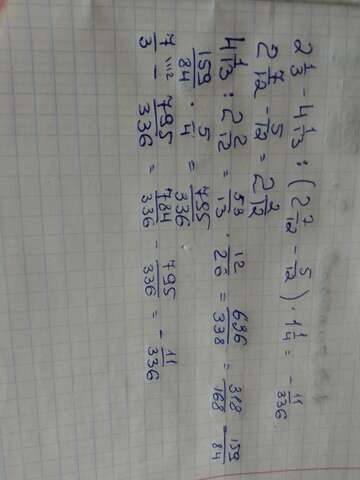 2 1/3 - 4 1/13 : (2 7/12 - 5/12) · 1 1/4 = - 11/336
2 7/12 - 5/12 = 2 2/12
4 1/13 : 2 2/12 = 53/13 · 12/26 = 636/338 = 318/168 = 159/84
159/84 · 5/4 = 795/336
7/3 - 795/336 = 784/336 - 795/336 = - 11/336